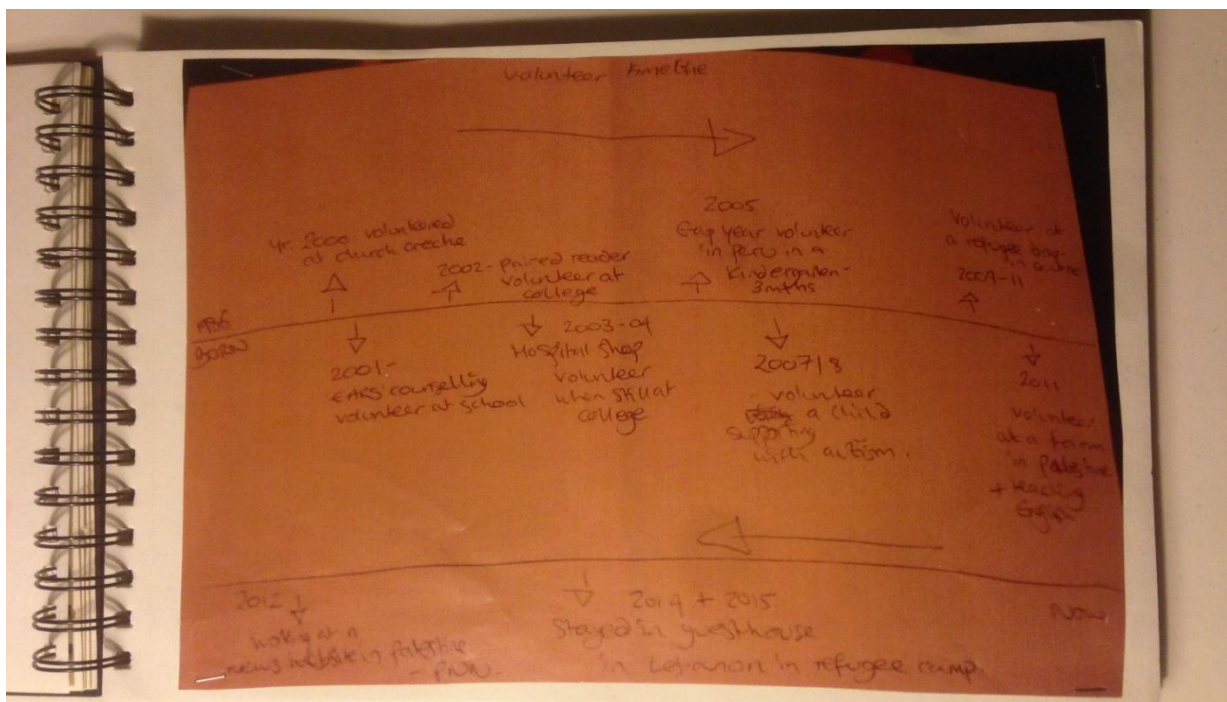 Volunteer timeline
yr. 2000 volunteered
at church creche
2002 - paired reader
volunteer at
college
2005
Gap year volunteer
in peru in a
kindergarten -
3mths
Volunteer at
a refugee drop-
in centre
2009-11
1986
BORN
2001 -
'EARS' counselling
volunteer at school
2003-04
Hospital Shop
volunteer
when still at
college
2007/8
volunteer
a child
supporting
with autism.
2011
volunteer
at a farm
in palestine
+ teaching
English
2012
working at a
news website in palestine
- PNN.
2014 + 2015
Stayed in guesthouse
in Lebanon in refugee camp.
NOW